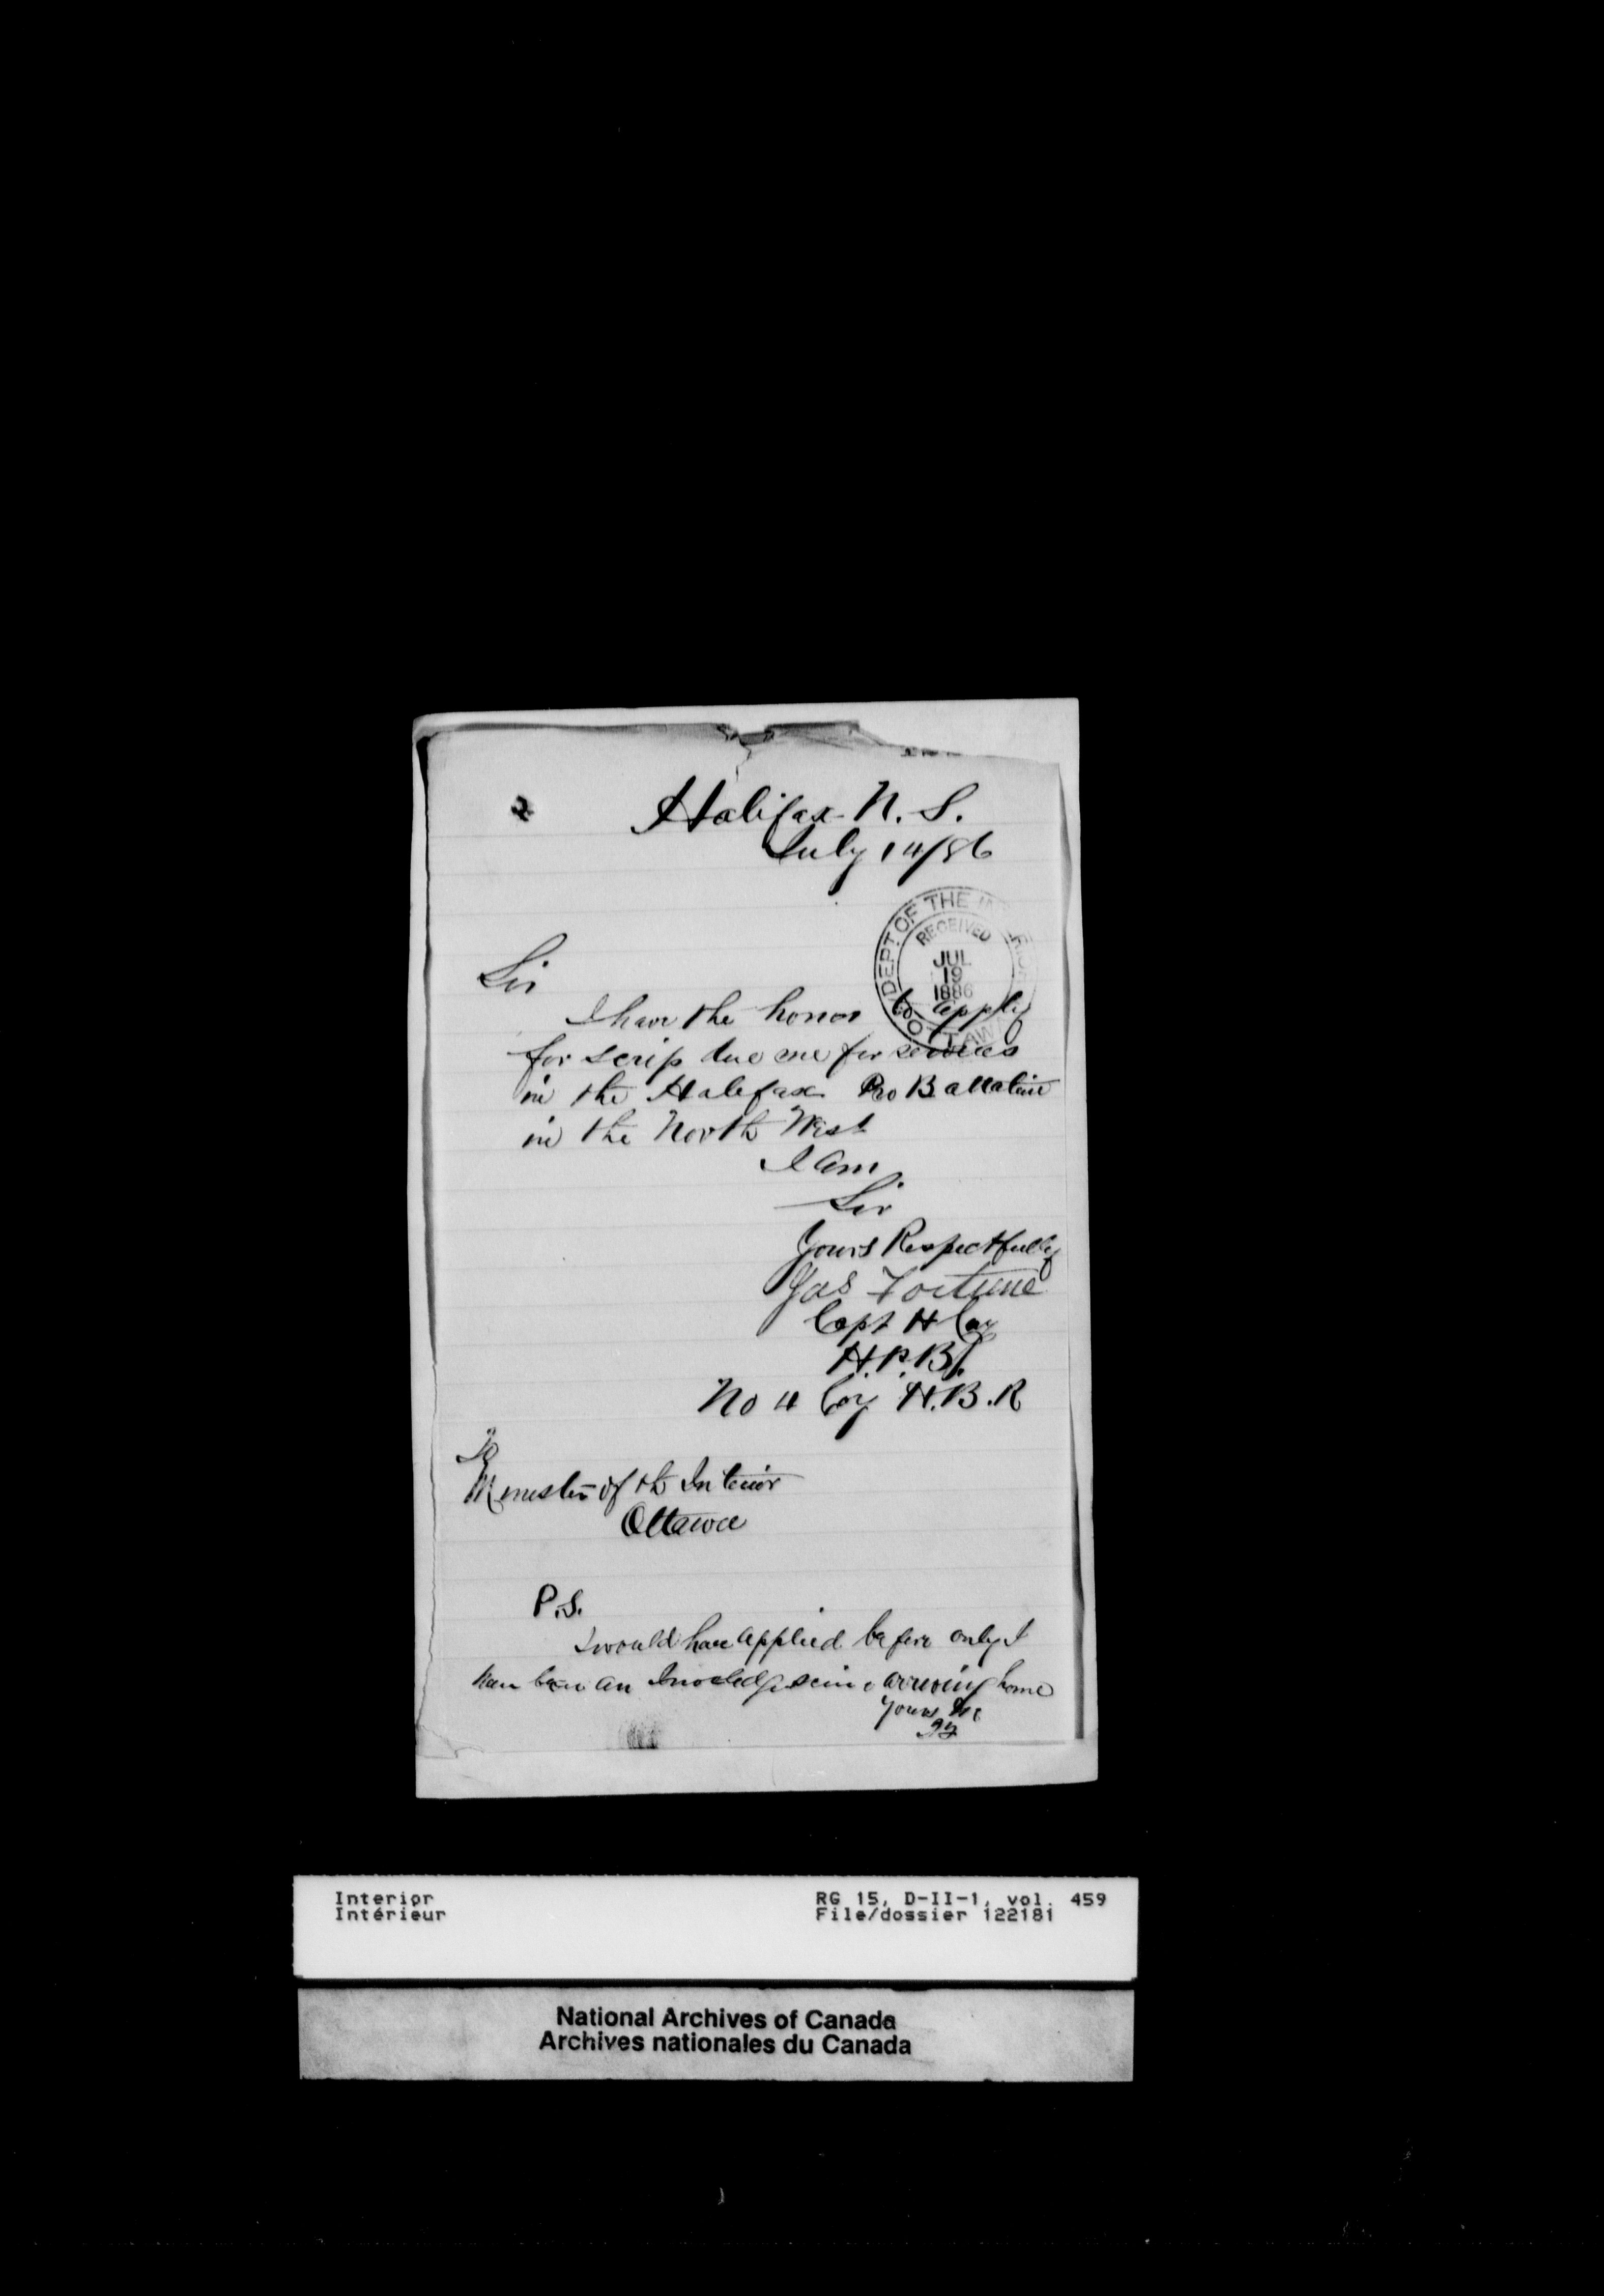 Halifax N. S.
July 14/86
DEPT OF THE INTERIOR
RECEIVED
JUL
19
1886
OTTAWA
Sir
I have the honor to apply
for scrip due me for services
in the Halifax Pro Battalion
in the North West
I am
Sir
Yours Respectfully
Jas Fortune
Capt H Coy
H.P.B.
No 4 Coy H.B.R
To
Minester of th Interior
Ottawa
P.S.
I would have applied before only I
have been an since arriving home
Yours &c
Interior
Intérieur
RG 15, D-II-1, vol. 459
File/dossier 122181
National Archives of Canada
Archives nationales du Canada